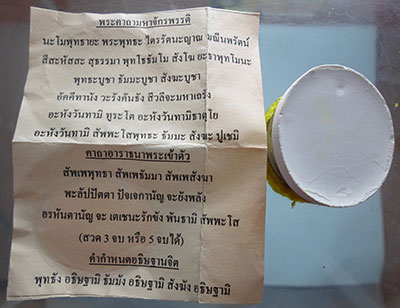 พระคาถามหาจักรพรรดิ
นะโมพุทธายะ พระพุทธะ ไตรรัตนะญาณ มณีนพรัตน์
สีสะหัสสะ สุธรรมา พุทโธธัมโม สังโฆ ยะธาพุทโมนะ
พุทธะบูชา ธัมมะบูชา สังฆะบูชา
อัคคีทานัง วะรังคันธัง สีวลีจะมหาเถรัง
อะหังวันทามิ ทูระโต อะหังวันทามิธาตุโย
อะหังวันทามิ สัพพะโสพุทธะ ธัมมะ สังฆะ ปูเชมิ
คาถาอาราธนาพระเข้าตัว
สัพเพพุทธา สัพเพธัมมา สัพเพสังฆา
พะลัปปัตตา ปัจเจกานัญ จะยังพลัง
อรหันตานัญ จะ เตเชนะรักขัง พันธามิ สัพพะโส
(สวด 3 จบ หรือ 5 จบได้)
คำกำหนดอธิษฐานจิต
พุทธัง อธิษฐามิ ธัมมัง อธิษฐามิ สังฆัง อธิษฐามิ